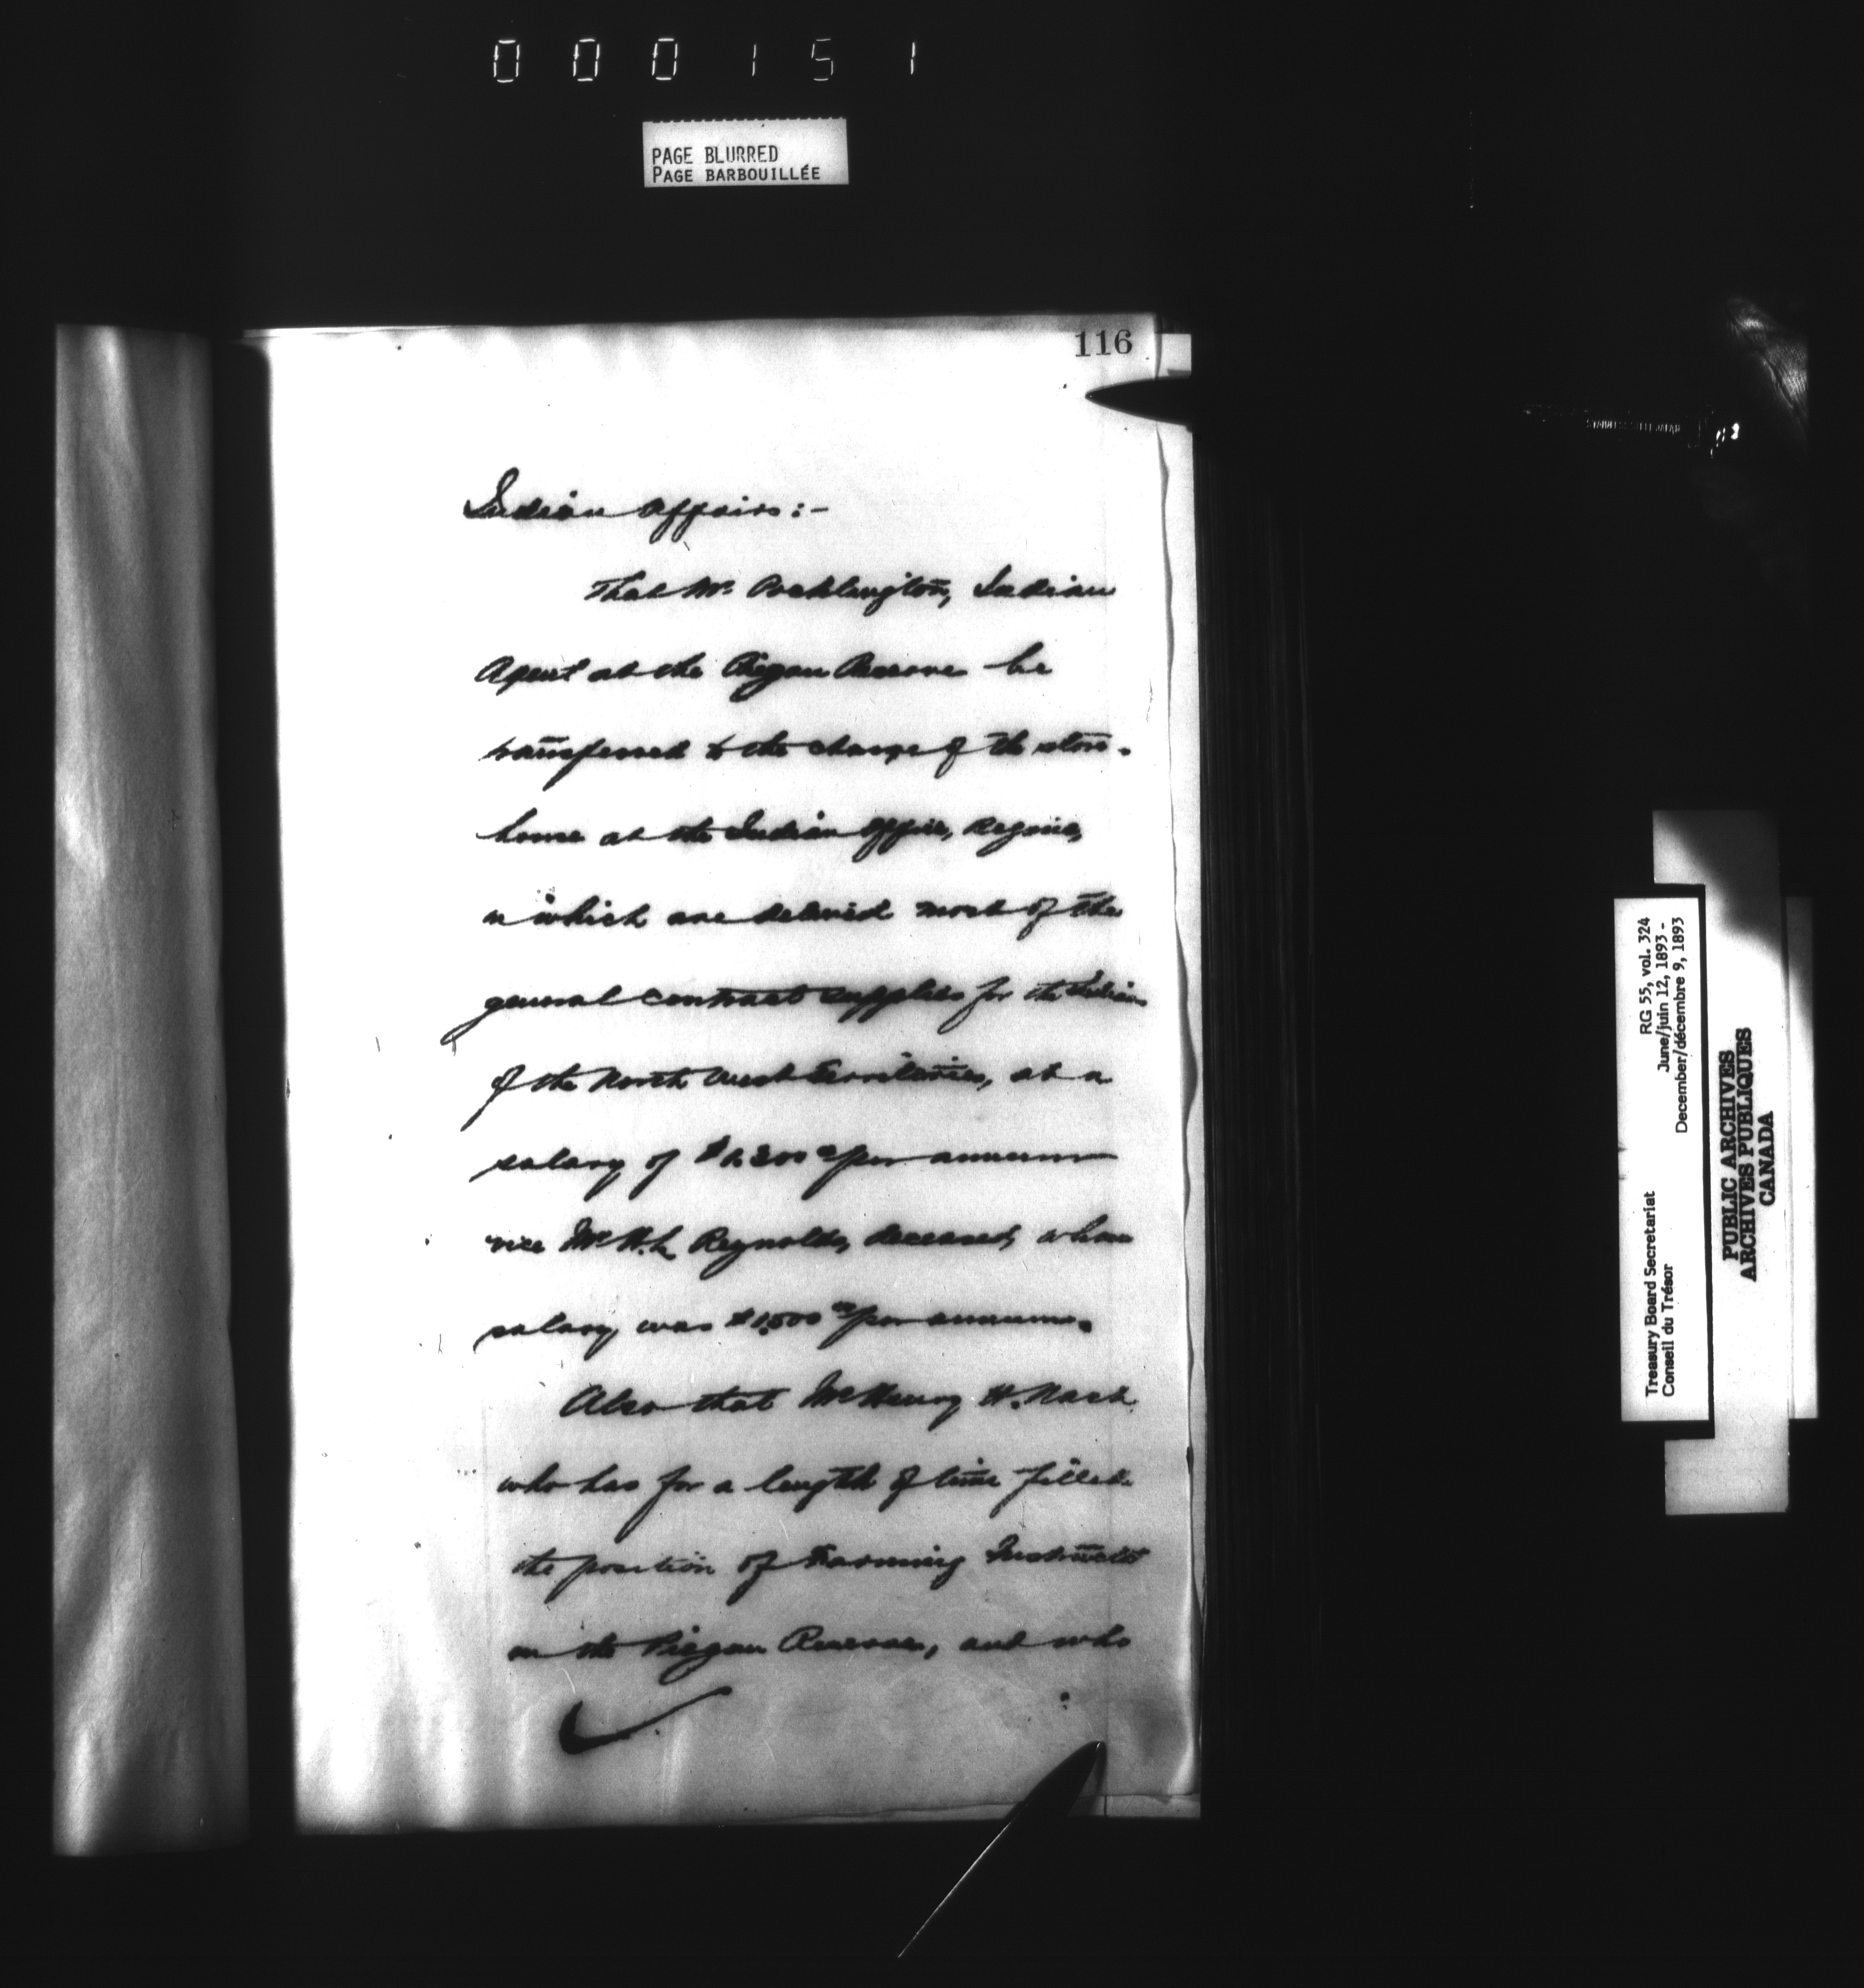 000151
PAGE BLURRED
PAGE BARBOUILLÉE
116
Indian Affairs:-
That Mr. Pocklington, Indian
Agent at the Piegan Reserve be
transferred to the charge of the store-
house at the Indian Office, Regina,
in which are delivered most of the
general contract supplies for the Indians
of the North West Territories, at a
salary of $1,200 00 per annum
vice Mr. H. L. Reynolds, deceased, whose
salary was $1,500 00 per annum.
Also that Mr Henry H. Nash
who has for a length of time filled
the position of Farming Instructor
on the Piegan Reserve, and who
RG 55, vol. 324
June/juin 12, 1893 -
December/décembre 9, 1893
Treasury Board Secretariat
Conseil du Trésor
PUBLIC ARCHIVES
ARCHIVES PUBLIQUES
CANADA